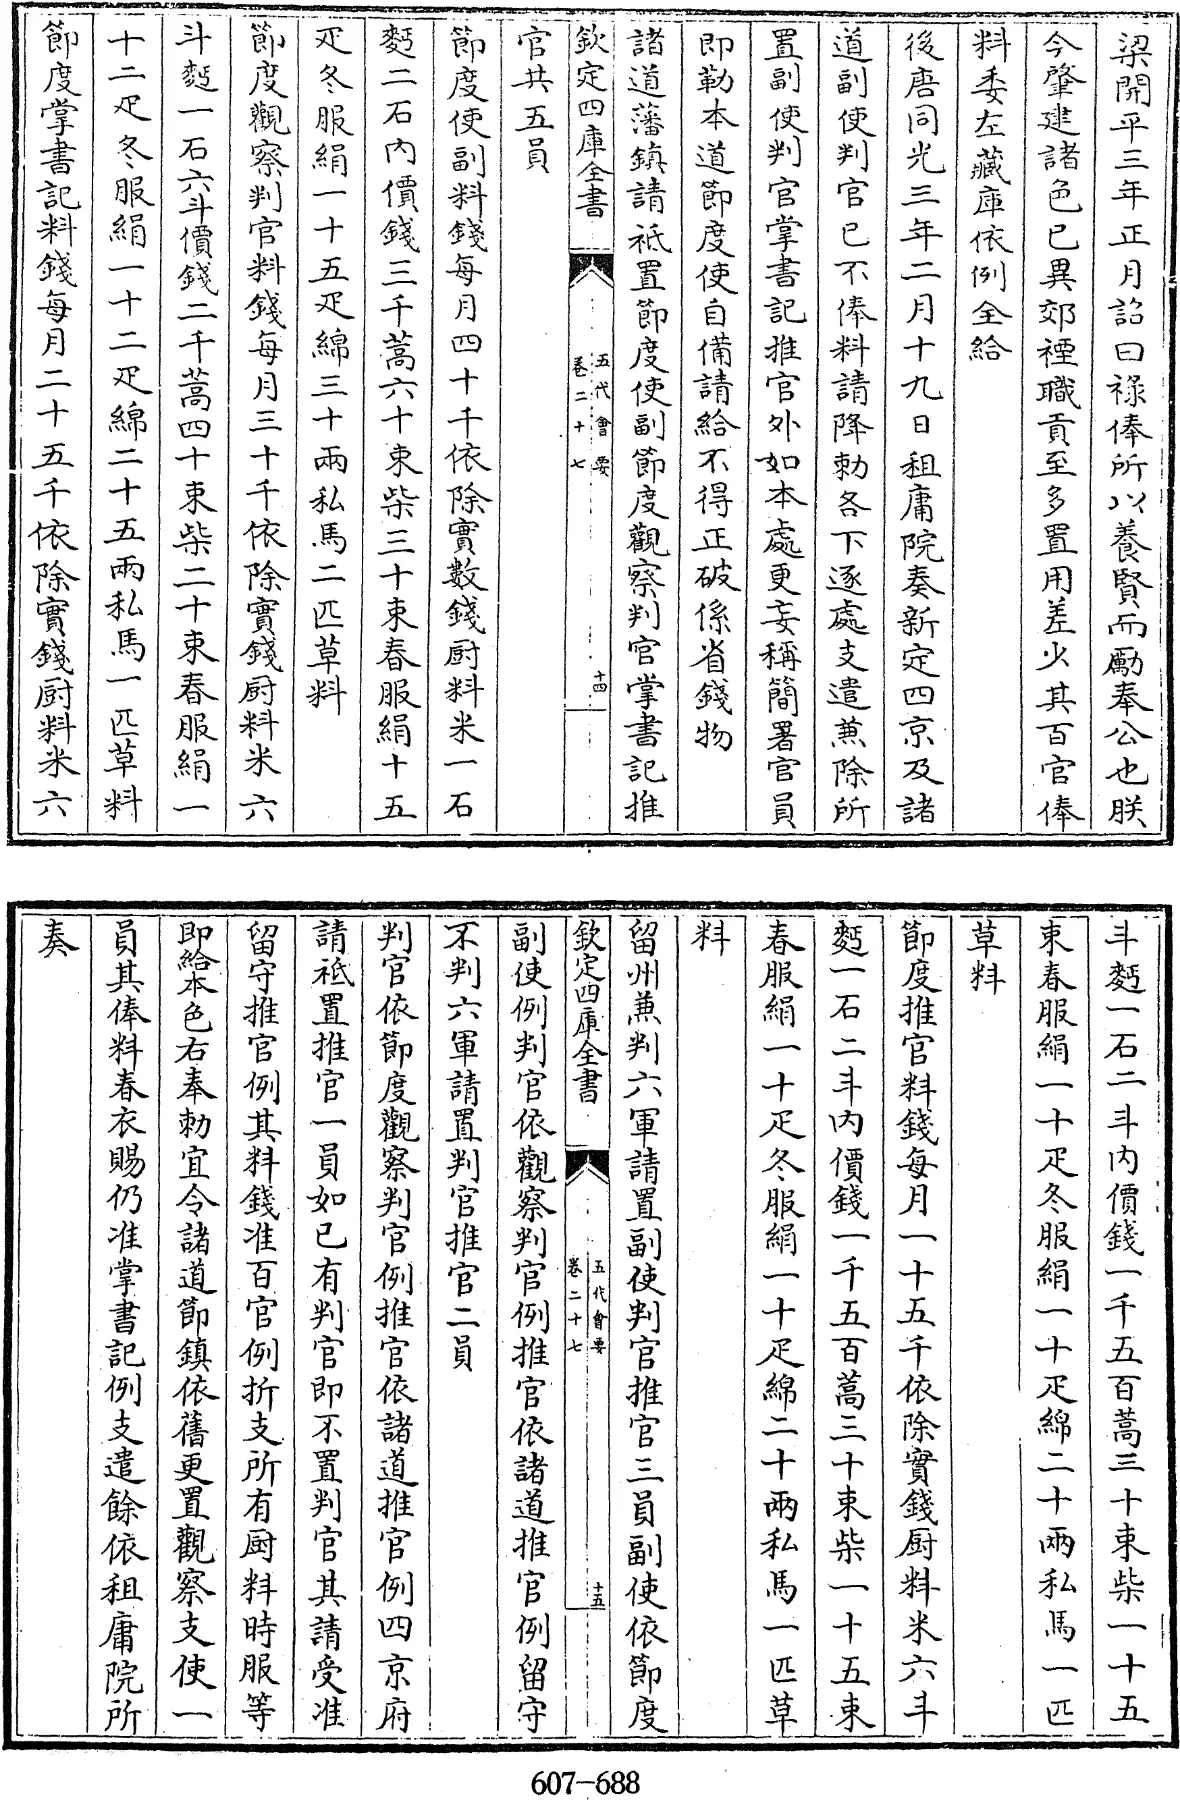 梁開平三年正月詔曰祿俸所以養賢而勵奉公也朕
今肇建諸色已異郊禋職貢至多置用差少其百官俸
料委左藏庫依例全給
後唐同光三年二月十九日租庸院奏新定四京及諸
道副使判官已不俸料請降勅各下逐處支遣兼除所
置副使判官掌書記推官外如本處更妄稱簡署官員
即勒本道節度使自備請給不得正破係省錢物
諸道藩鎮請祗置節度使副節度觀察判官掌書記推
欽定四庫全書
五代會要
卷二十七
十四
官共五員
節度使副料錢每月四十千依除實數錢厨料米一石
麪二石內價錢三千蒿六十束柴三十束春服絹十五
疋冬服絹一十五疋綿三十兩私馬二匹草料
節度觀察判官料錢每月三十千依除實錢厨料米六
斗麪一石六斗價錢二千蒿四十束柴二十束春服絹一
十二疋冬服絹一十二疋綿二十五兩私馬一匹草料
節度掌書記料錢每月二十五千依除實錢厨料米六
斗麪一石二斗內價錢一千五百蒿三十束柴一十五
束春服絹一十疋冬服絹一十疋綿二十兩私馬一匹
草料
節度推官料錢每月一十五千依除實錢厨料米六斗
麪一石二斗內價錢一千五百蒿三十束柴一十五束
春服絹一十疋冬服絹一十疋綿二十兩私馬一匹草
料
留州兼判六軍請置副使判官推官三員副使依節度
欽定四庫全書
五代會要
卷二十七
十五
副使例判官依觀察判官例推官依諸道推官例留守
不判六軍請置判官推官二員
判官依節度觀察判官例推官依諸道推官例四京府
請祗置推官一員如已有判官即不置判官其請受准
留守推官例其料錢准百官例折支所有厨料時服等
即給本色右奉勅宜令諸道節鎮依舊更置觀察支使一
員其俸料春衣賜仍准掌書記例支遣餘依租庸院所
奏
607-688